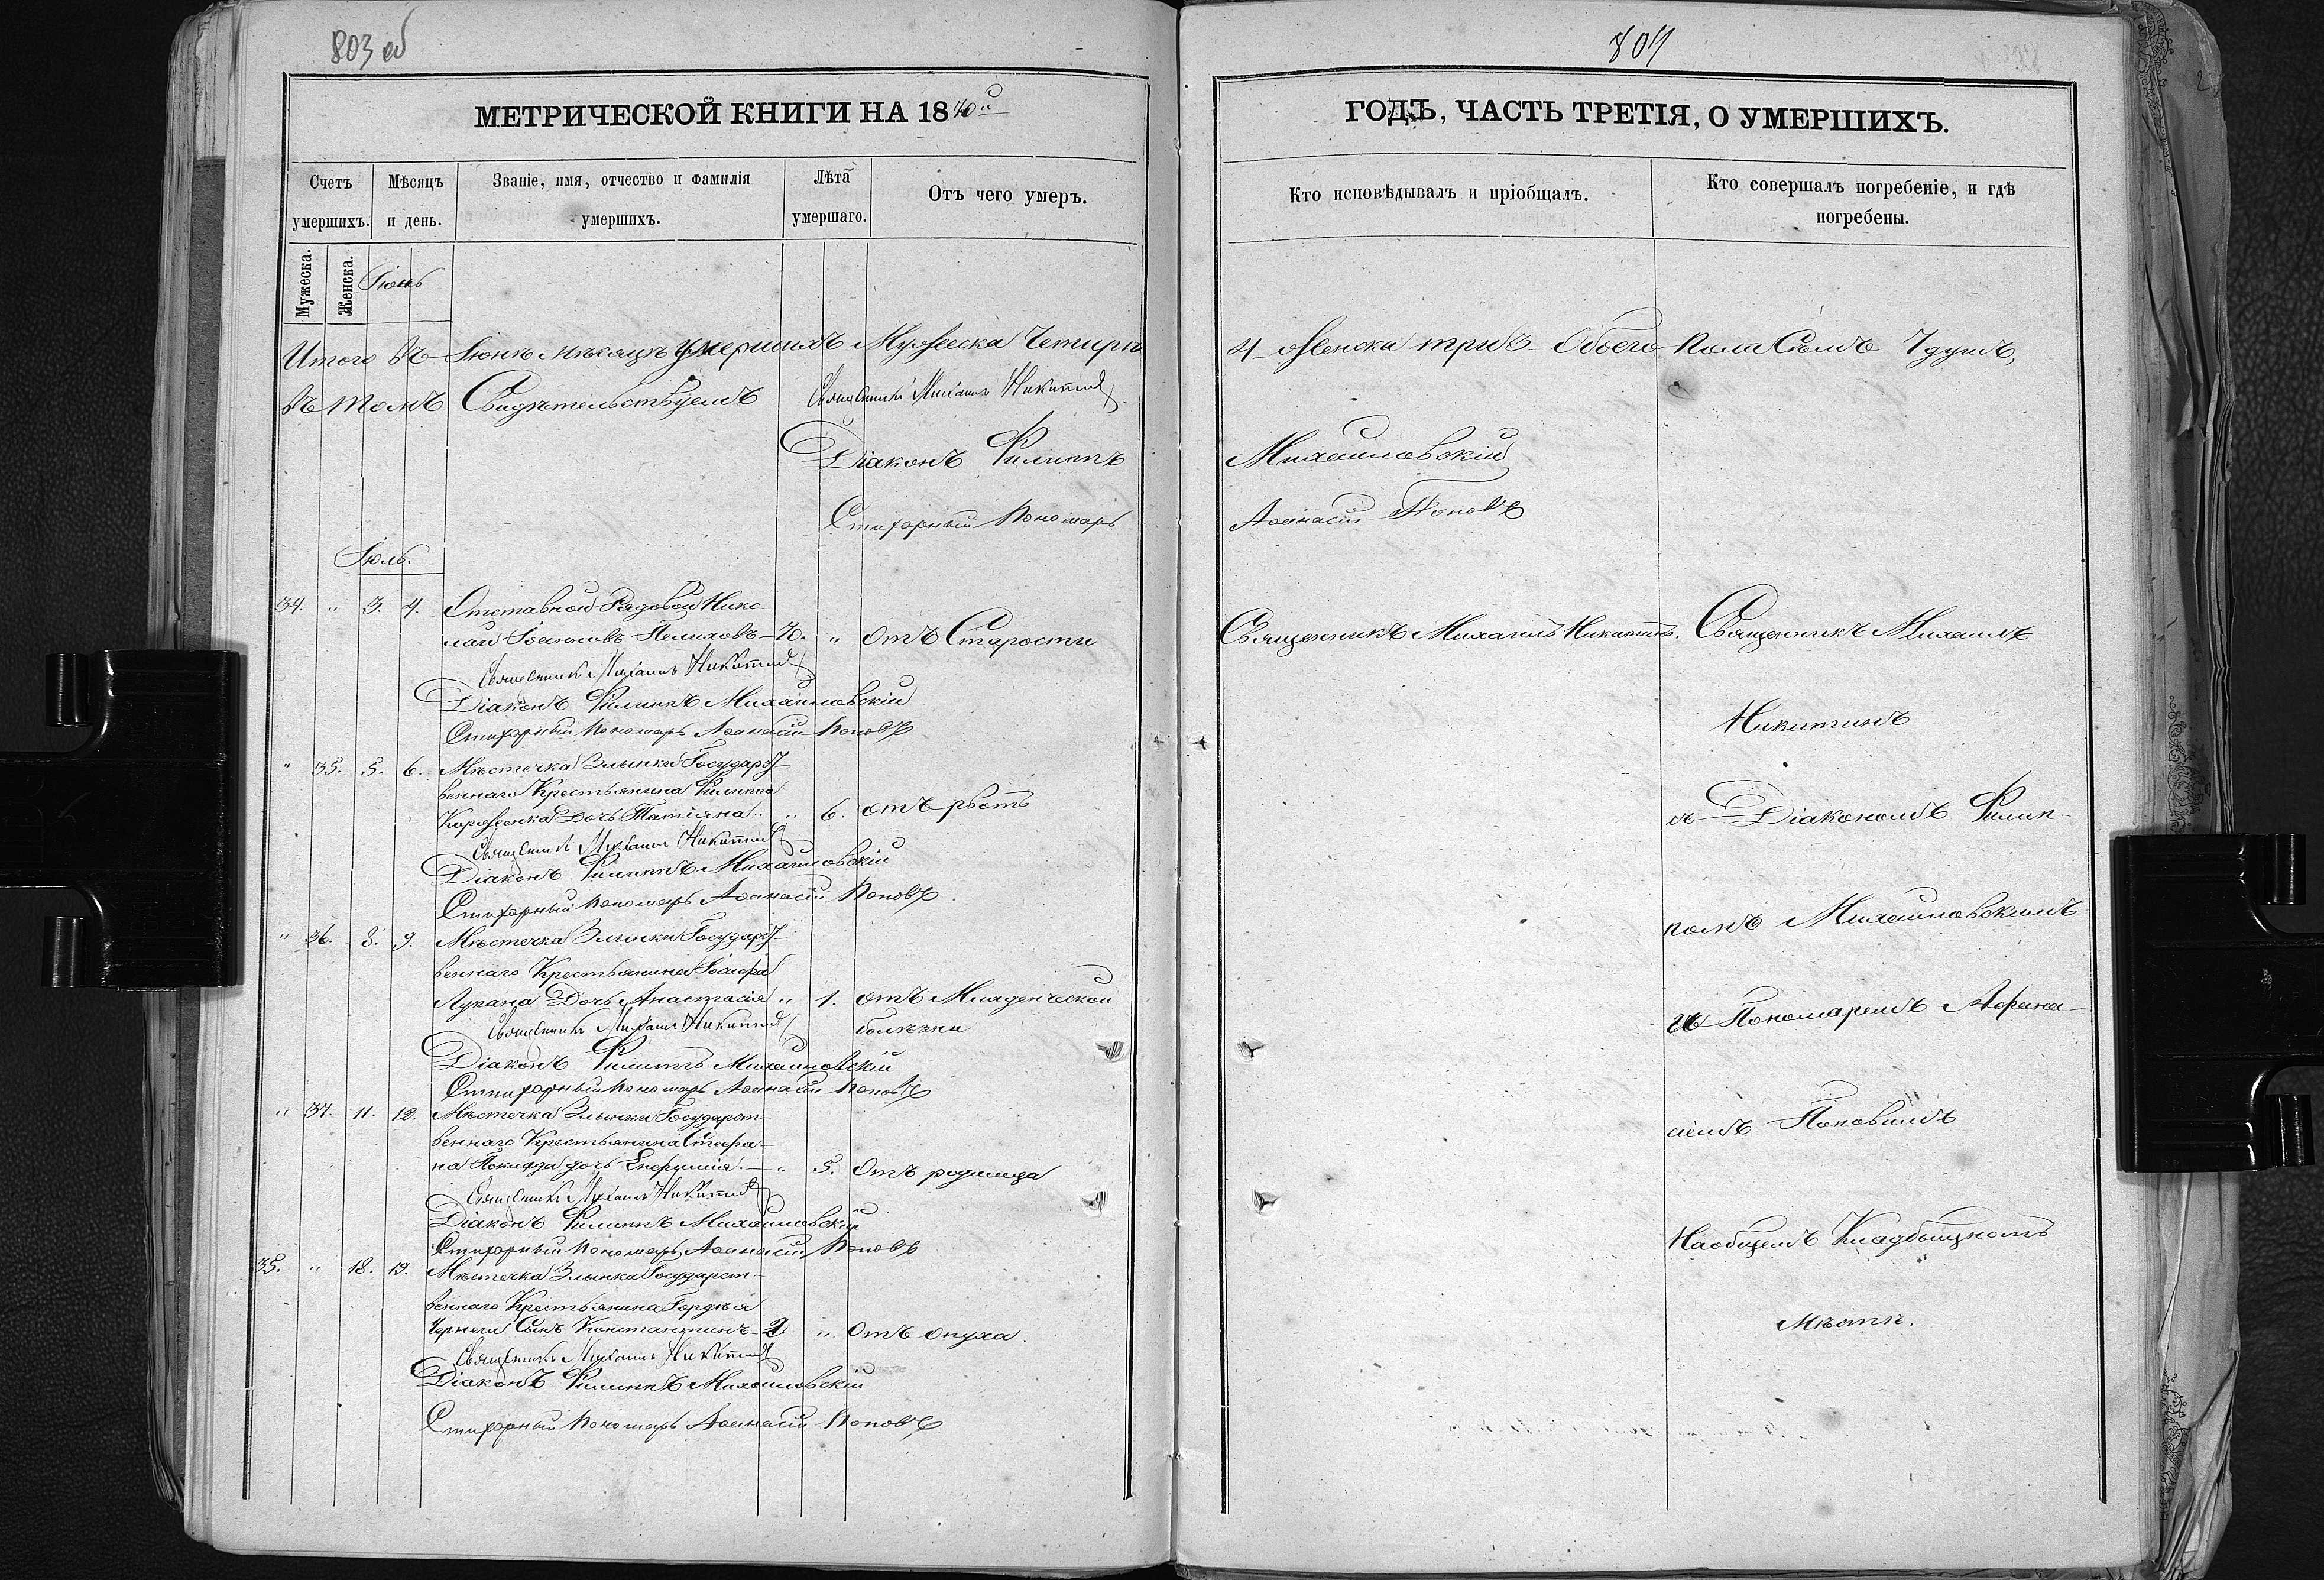 803 об
804
МЕТРИЧЕСКОЙ КНИГИ НА 1870й
ГОДЪ, ЧАСТЬ ТРЕТІЯ, О УМЕРШИХЪ.
Счетъ умершихъ.
Мѣсяцъ и день.
Званіе, имя, отчество и фамилія умершихъ.
Лѣта умершаго.
Отъ чего умеръ.
Кто исповѣдывалъ и пріобщалъ.
Кто совершалъ погребеніе, и гдѣ погребены.
Мужеска.
Женска.
Іюнь
Итого Въ Іюнѣ мѣсяцѣ умершихъ Мужеска Четыри 4 женска три 3 Обоего пола Семъ 7 душъ,
Въ томъ Свидѣтельствуемъ Священникъ Михаилъ Никитинъ
Діаконъ Филиппъ Михаиловскій
Стихарный Пономарь Аѳанасій Поповъ
Іюль.
34. " 3. 4. Отставной Рядовой Нико-
лай Іоанновъ 70. " отъ Старости
Священникъ Михаилъ Никитинъ
Діаконъ Филиппъ Михаиловскій
Стихарный Пономарь Аѳанасій Поповъ
" 35. 5. 6. Мѣстечка Злынки Государст-
веннаго Крестьянина Филиппа
Дочь Татіяна " 6. отъ рвоты
Священникъ Михаилъ Никитинъ
Діаконъ Филиппъ Михаиловскій
Стихарный Пономарь Аѳанасій Поповъ
" 36. 8. 9. Мѣстечка Злынки Государст-
веннаго Крестьянина Іосифа
Лупана Дочь Анастасія " 1. отъ Младенческой
болѣзни
Священникъ Михаилъ Никитинъ
Діаконъ Филиппъ Михаиловскій
Стихарный Пономарь Аѳанасій Поповъ
" 37. 11. 12. Мѣстечка Злынки Государст-
веннаго Крестьянина Стефа-
на дочь Евфимія. " 5. Отъ родимца
Священникъ Михаилъ Никитинъ
Діаконъ Филиппъ Михаиловскій
Стихарный Пономарь Аѳанасій Поповъ
35. " 18. 19. Мѣстечка Злынка Государст-
веннаго Крестьянина Гордѣя
Чернеги Сынъ Константинъ 2. " Отъ опуха.
Священникъ Михаилъ Никитинъ
Діаконъ Филиппъ Михаиловскій
Стихарный Пономарь Аѳанасій Поповъ
Священникъ Михаилъ Никитинъ.
Священникъ Михаилъ
Никитинъ
съ Діакономъ Филип-
помъ Михаиловскимъ
съ Пономаремъ Афана-
сіемъ Поповимъ
Наобщемъ Кладбищномъ
Мѣсти.